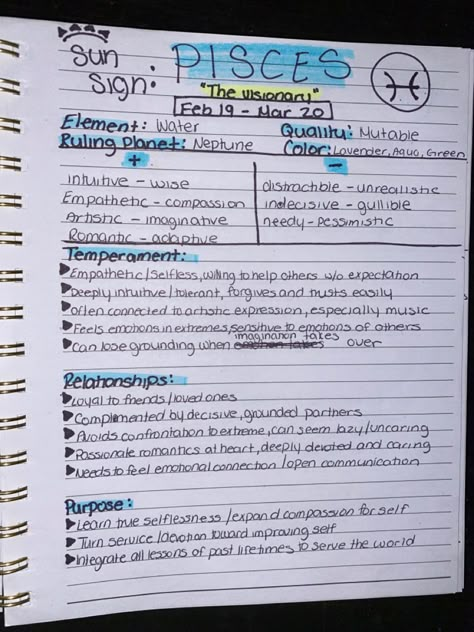 Sun
Sign: PISCES
"The visionary"
Feb 19 - Mar 20
Element: Water Quality: Mutable
Ruling Planet: Neptune Color: Lavender, Aqua, Green
+ -
intuitive - wise distractible - unrealistic
Empathetic - compassion indecisive - gullible
Artistic - imaginative needy - pessimistic
Romantic - adaptive
Temperament:
Empathetic/selfless, willing to help others w/o expectation
Deeply intuitive/tolerant, forgives and trusts easily
Often connected to artistic expression, especially music
Feels emotions in extremes, sensitive to emotions of others
imagination takes
Can lose grounding when over
Relationships:
Loyal to friends/loved ones
Complimented by decisive, grounded partners
Avoids confrontation to extreme, can seem lazy/uncaring
Passionate romantics at heart, deeply devoted and caring
Needs to feel emotional connection/open communication
Purpose:
Learn true selflessness/expand compassion for self
Turn service/devotion toward improving self
Integrate all lessons of past lifetimes to serve the world